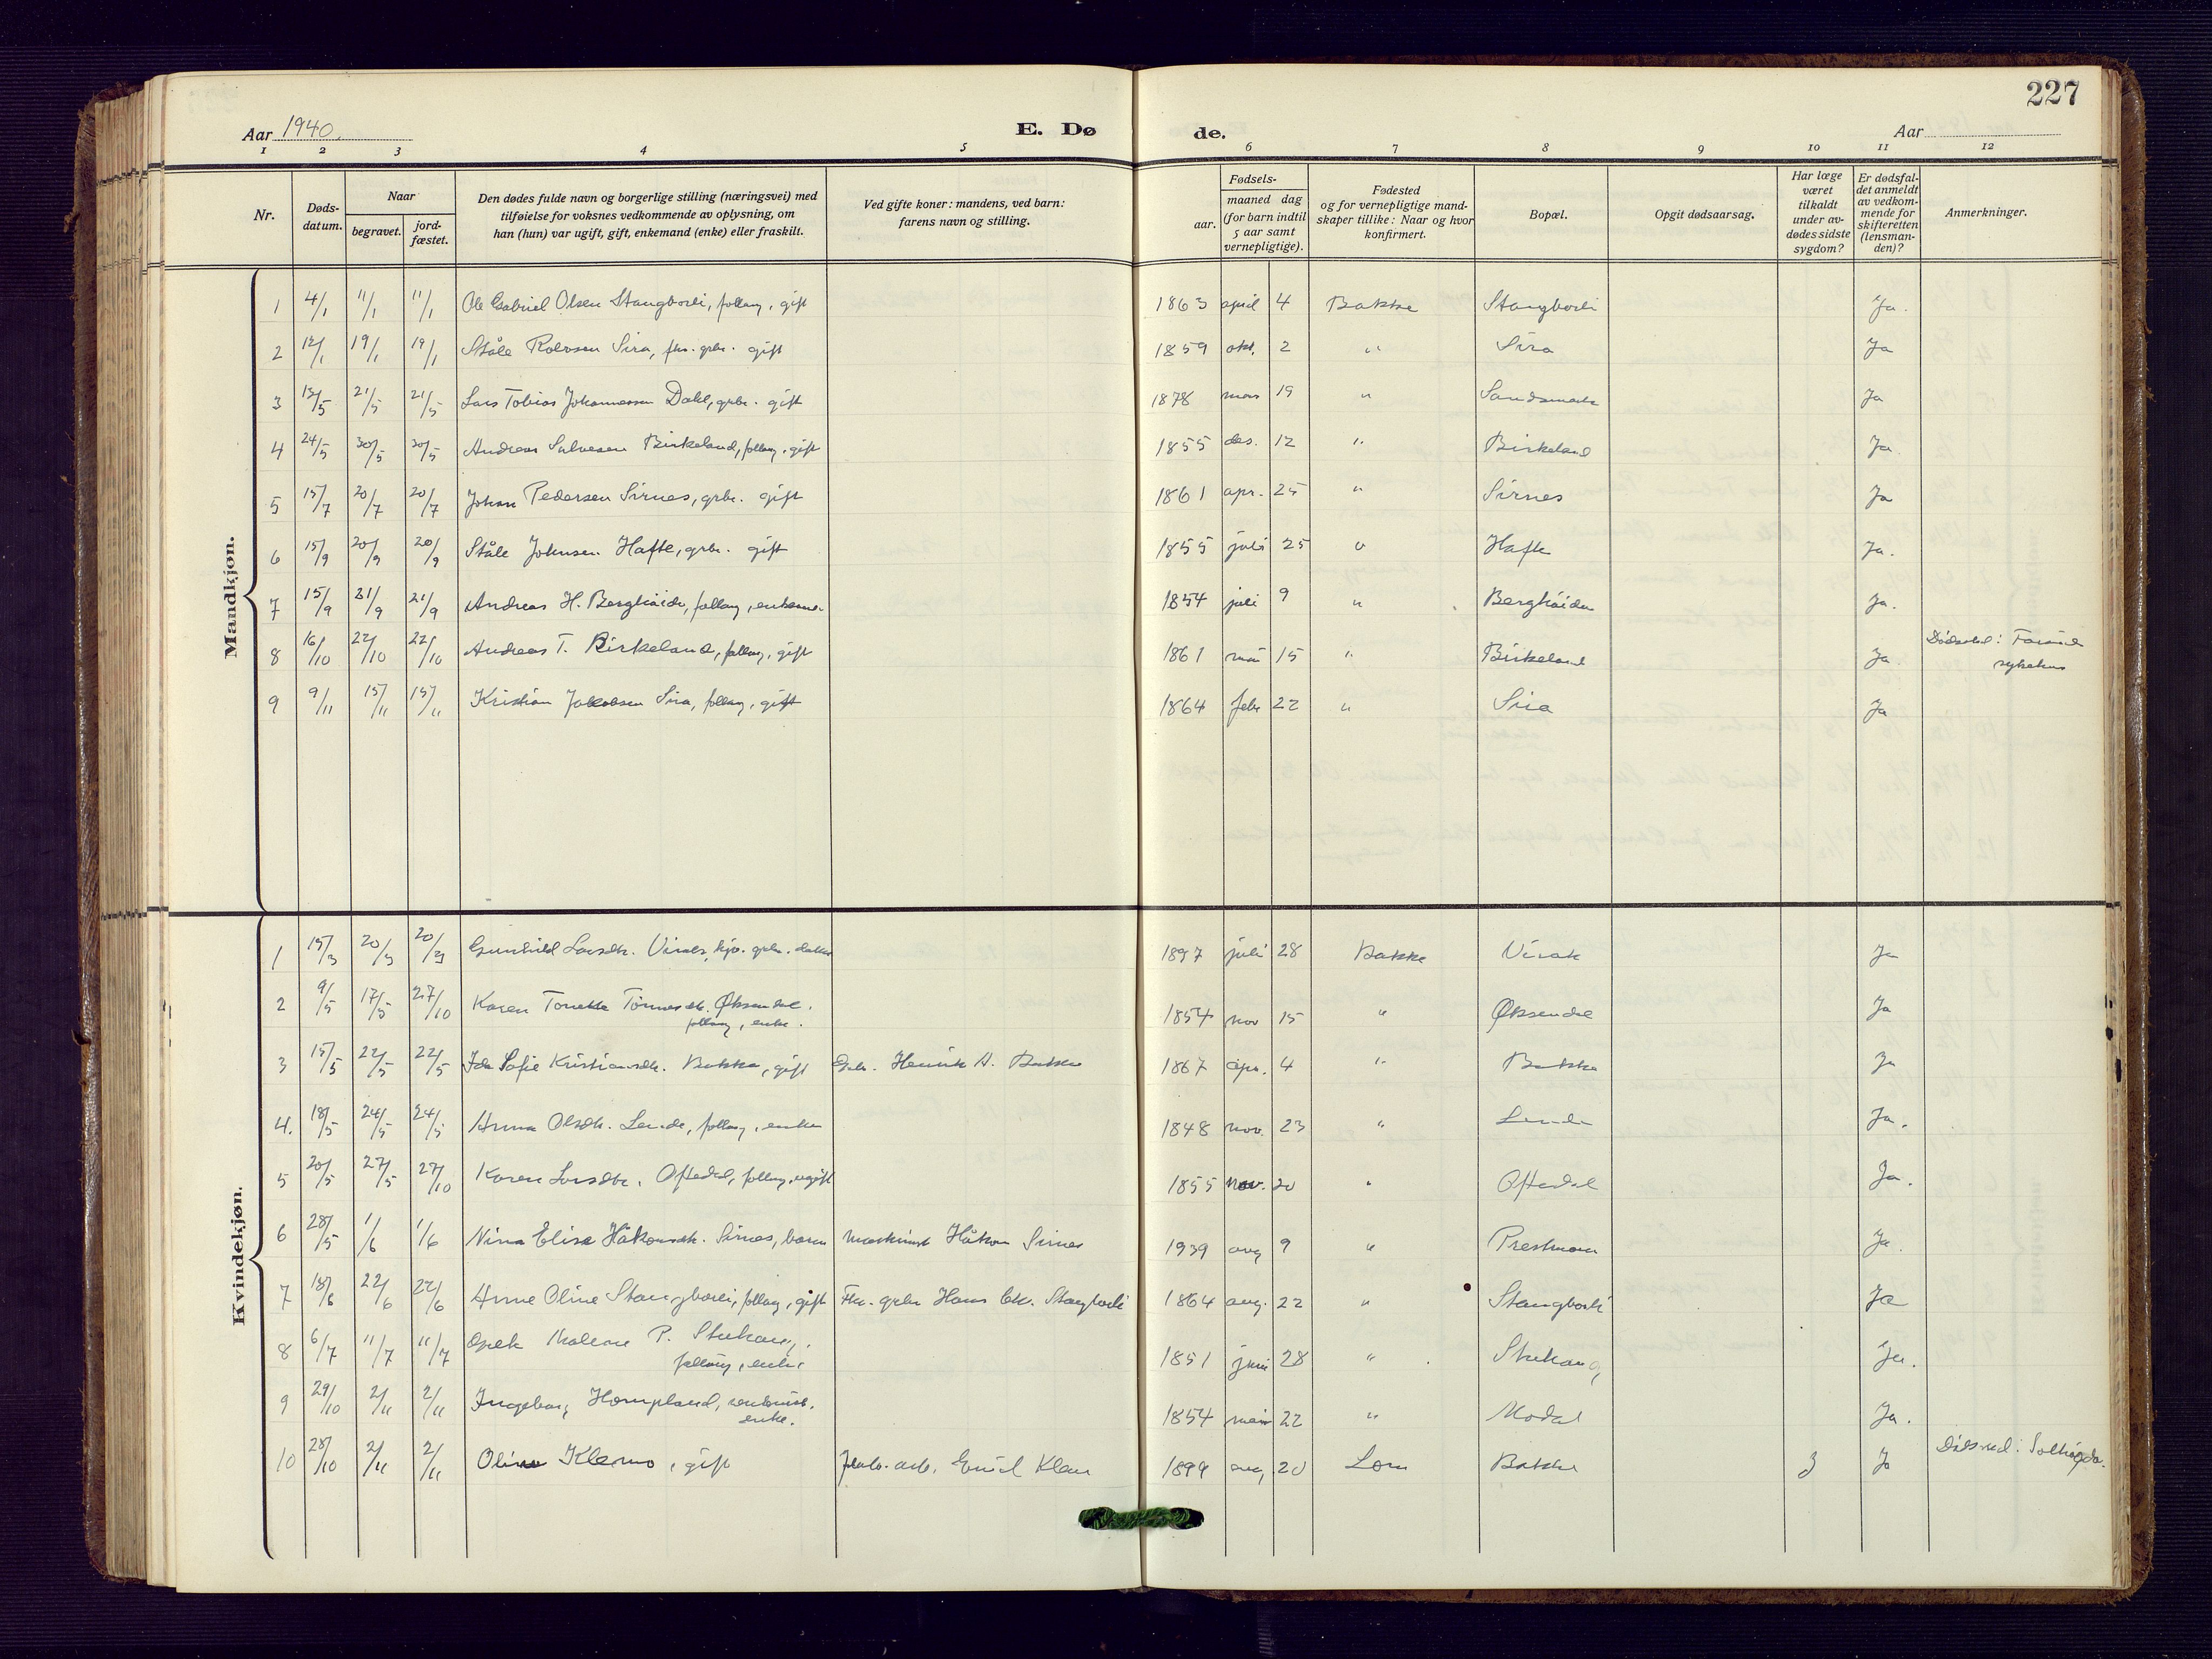 227
Aar 1940 E. Dø de. Aar
1 2 3 4 5 6 7 8 9 10 11 12
Nr.
Døds-
datum.
Naar
begravet.
jord-
fæstet.
Den dødes fulde navn og borgerlige stilling (næringsvei) med
tilføielse for voksnes vedkommende av oplysning, om
han (hun) var ugift, gift, enkemand (enke) eller fraskilt.
Ved gifte koner: mandens, ved barn:
farens navn og stilling.
Fødsels-
aar.
maaned dag
(for barn indtil
5 aar samt
vernepligtige).
Fødested
og for vernepligtige mand-
skaper tillike: Naar og hvor
konfirmert.
Bopæl.
Opgit dødsaarsag.
Har læge
været
tilkaldt
under av-
dødes sidste
sygdom?
Er dødsfal-
det anmeldt
av vedkom-
mende for
skifteretten
(lensman-
den)?
Anmerkninger.
Mandkjøn.
1 4/1 11/1 11/1 Ole Gabriel Olsen Stangborli, , gift 1863 april 4 Bakke Stangborli Ja.
2 12/1 19/1 19/1 Ståle Rolvsen Sira, fhv. grbr. gift 1859 okt. 2 " Sira Ja
3 13/5 21/5 21/5 Lars Tobias Johannessen Dahl, grbr. gift 1878 mars 19 " Sandsmark Ja
4 24/5 30/5 30/5 Andreas Salvesen Birkeland, , gift 1855 des. 12 " Birkeland Ja
5 15/7 20/7 20/7 Johan Pedersen Sirnes, grbr. gift 1861 apr. 25 " Sirnes Ja
6 15/9 20/9 20/9 Ståle Johnsen Hafte, grbr. gift 1855 juli 25 " Hafte Ja.
7 15/9 21/9 21/9 Andreas H. Berghöide, , 1854 juli 9 " Berghöiden Ja.
8 16/10 22/10 22/10 Andreas T. Birkeland, , gift 1861 mai 15 " Birkeland Ja Dödssted: Farsund
sykehus
9 9/11 15/11 15/11 Kristian Jakobsen Sira, , gift 1864 febr 22 " Sira Ja
Kvindekjøn.
1 15/3 20/3 20/3 Gunhild Larsdtr. , grbr. datter 1897 juli 28 Bakke Virak Ja
2 9/5 17/5 27/10 Karen Tonette Tönnesdtr. Øksendal.
, enke. 1854 nov 15 " Øksendal Ja
3 15/5 22/5 22/5 Ida Sofie Kristiansdtr. Bakke, gift Grbr. Henrik A. Bakke 1867 apr. 4 " Bakke Ja
4. 18/5 24/5 24/5 Anna Olsdtr. Lende, , enke 1848 nov. 23 " Lende Ja.
5 20/5 27/5 27/10 Karen Larsdtr. Oftedal, , ugift 1855 nov. 20 " Oftedal Ja.
6 28/5 1/6 1/6 Nina Elise Håkonsdtr. Sirnes, barn Maskinist Håkon Sirnes 1939 aug 9 " Prestmoen Ja.
7 18/6 22/6 22/6 Anne Oline Stangborli, , gift Fhv. grbr Hans Chr. Stangborli 1864 aug. 22 " Stangborli Ja
8 6/7 11/7 11/7 Malene P.
, enke 1851 juni 28 " Ja.
9 29/10 2/11 2/11 Ingeborg Hompland,
enke. 1854 mai 22 " Modal Ja.
10 28/10 2/11 2/11 Oline Klemo, gift arb. 1899 aug. 20 Lom Bakke J Ja Dödssted: